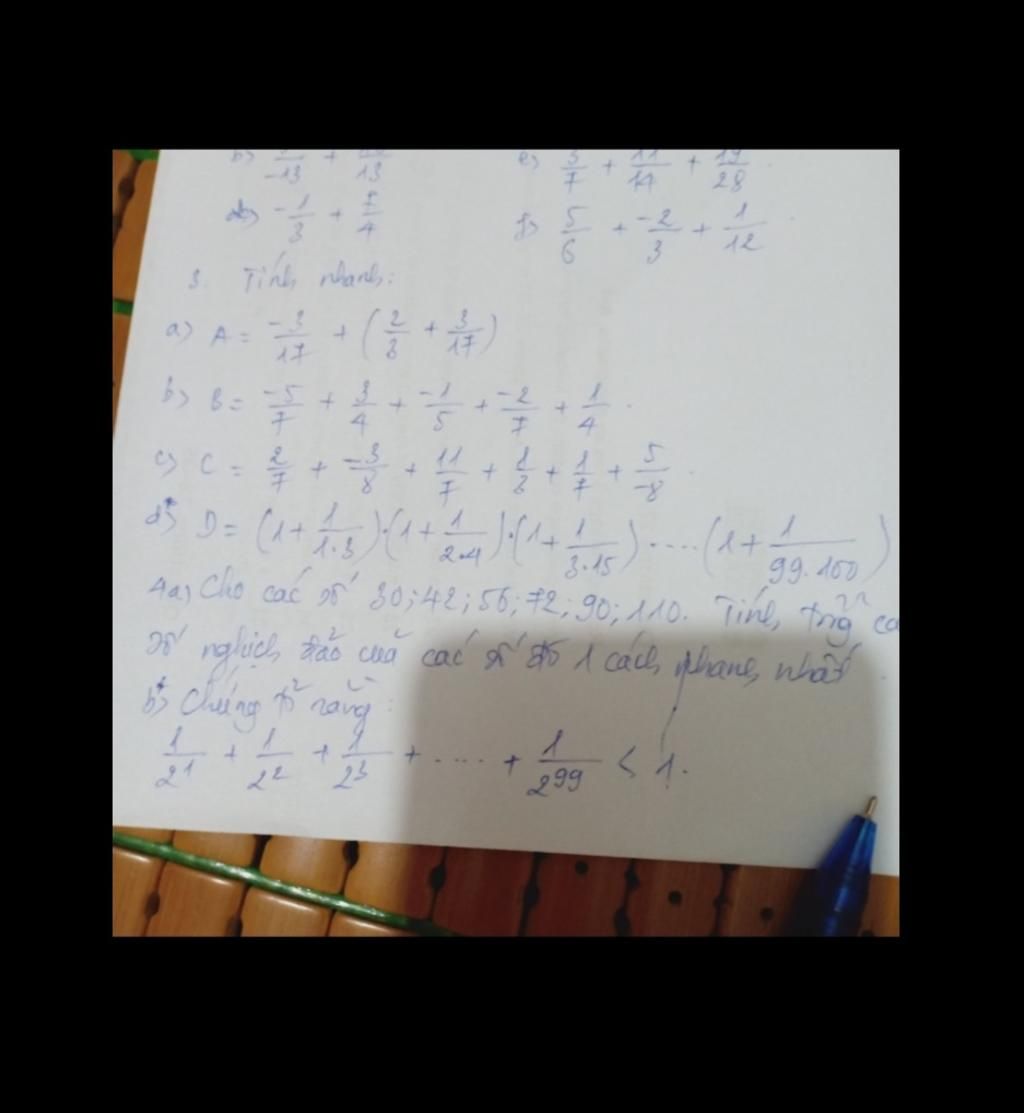 -13 + 13 e) 3/7 + 11/14 + 19/28.
-1/3 + 7/4 f) 5/6 + -2/3 + 1/12.
3. Tính nhanh:
a) A = -3/17 + (2/3 + 3/17)
b) B = -5/7 + 3/4 + -1/5 + -2/7 + 1/4.
c) C = 2/7 + -3/8 + 11/7 + 1/3 + 1/7 + 5/-8.
d*) D = (1 + 1/1.3).(1 + 1/2.4).(1 + 1/3.15).....(1 + 1/99.100)
4a) Cho các số 30; 42; 56; 72; 90; 110. Tính tổng cá
số nghịch đảo của các số đó 1 cách nhanh nhất.
b*) Chứng tỏ rằng:
1/2¹ + 1/2² + 1/2³ + .... + 1/2⁹⁹ < 1.